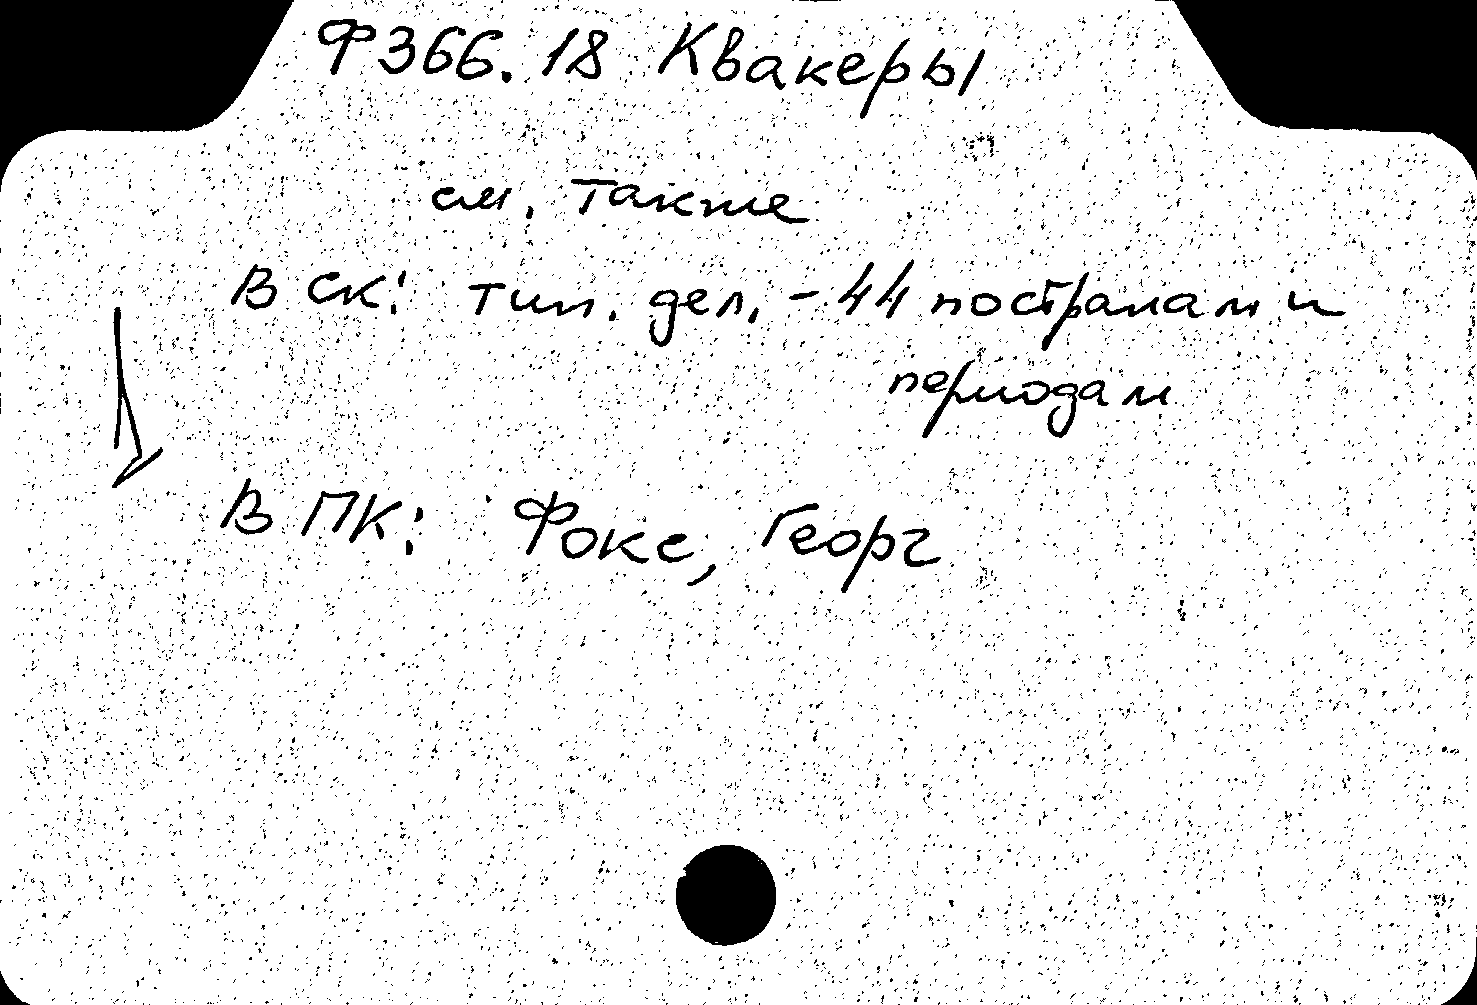 Ф366.18 Квакеры
см. также
В СК: тип. дел. - 44 по странам и
периодам
В ПК: Фокс, Георг